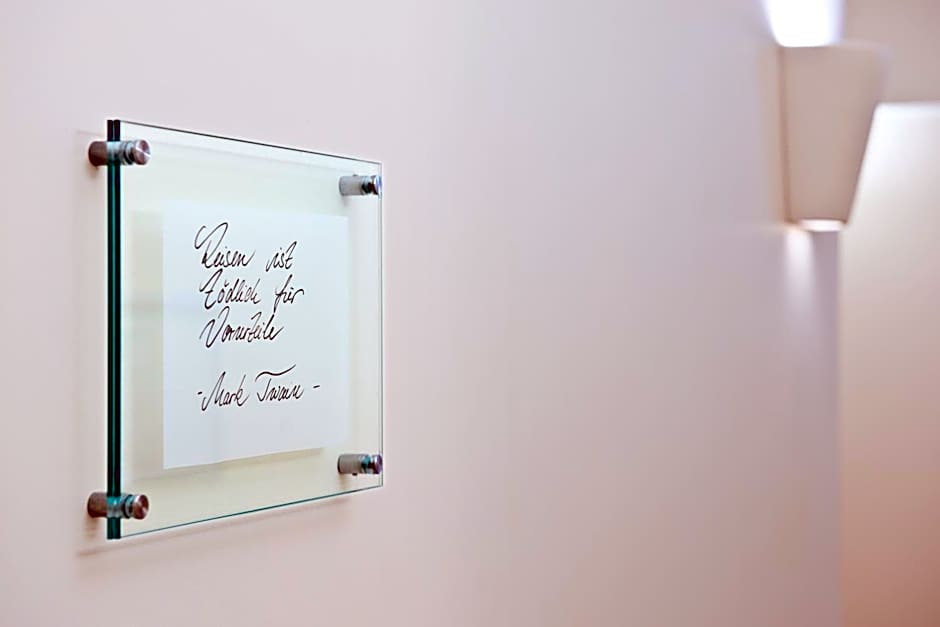 Reisen ist
tödlich für
Vorurteile
- Mark Twain -